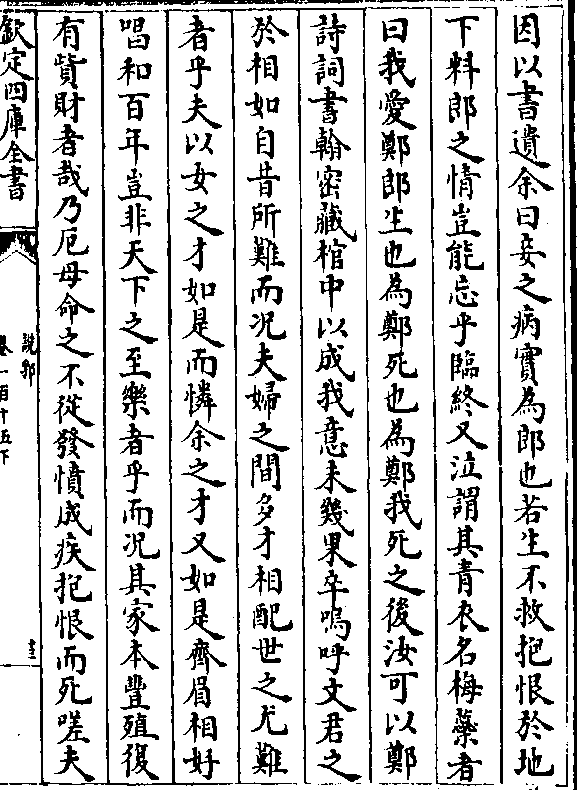 因以書遺余曰妾之病實為郎也若生不救抱恨於地
下料郎之情豈能忘乎臨終又泣謂其青衣名梅蘂者
曰我愛鄭郎生也為鄭死也為鄭我死之後汝可以鄭
詩詞書翰密藏棺中以成我意未幾果卒嗚呼文君之
於相如自昔所難而况夫婦之間多才相配世之尤難
者乎夫以女之才如是而憐余之才又如是齊眉相好
唱和百年豈非天下之至樂者乎而况其家本豐殖復
有貲財者哉乃厄母命之不從發憤成疾抱恨而死嗟夫
欽定四庫全書
說郛
卷一百十五下